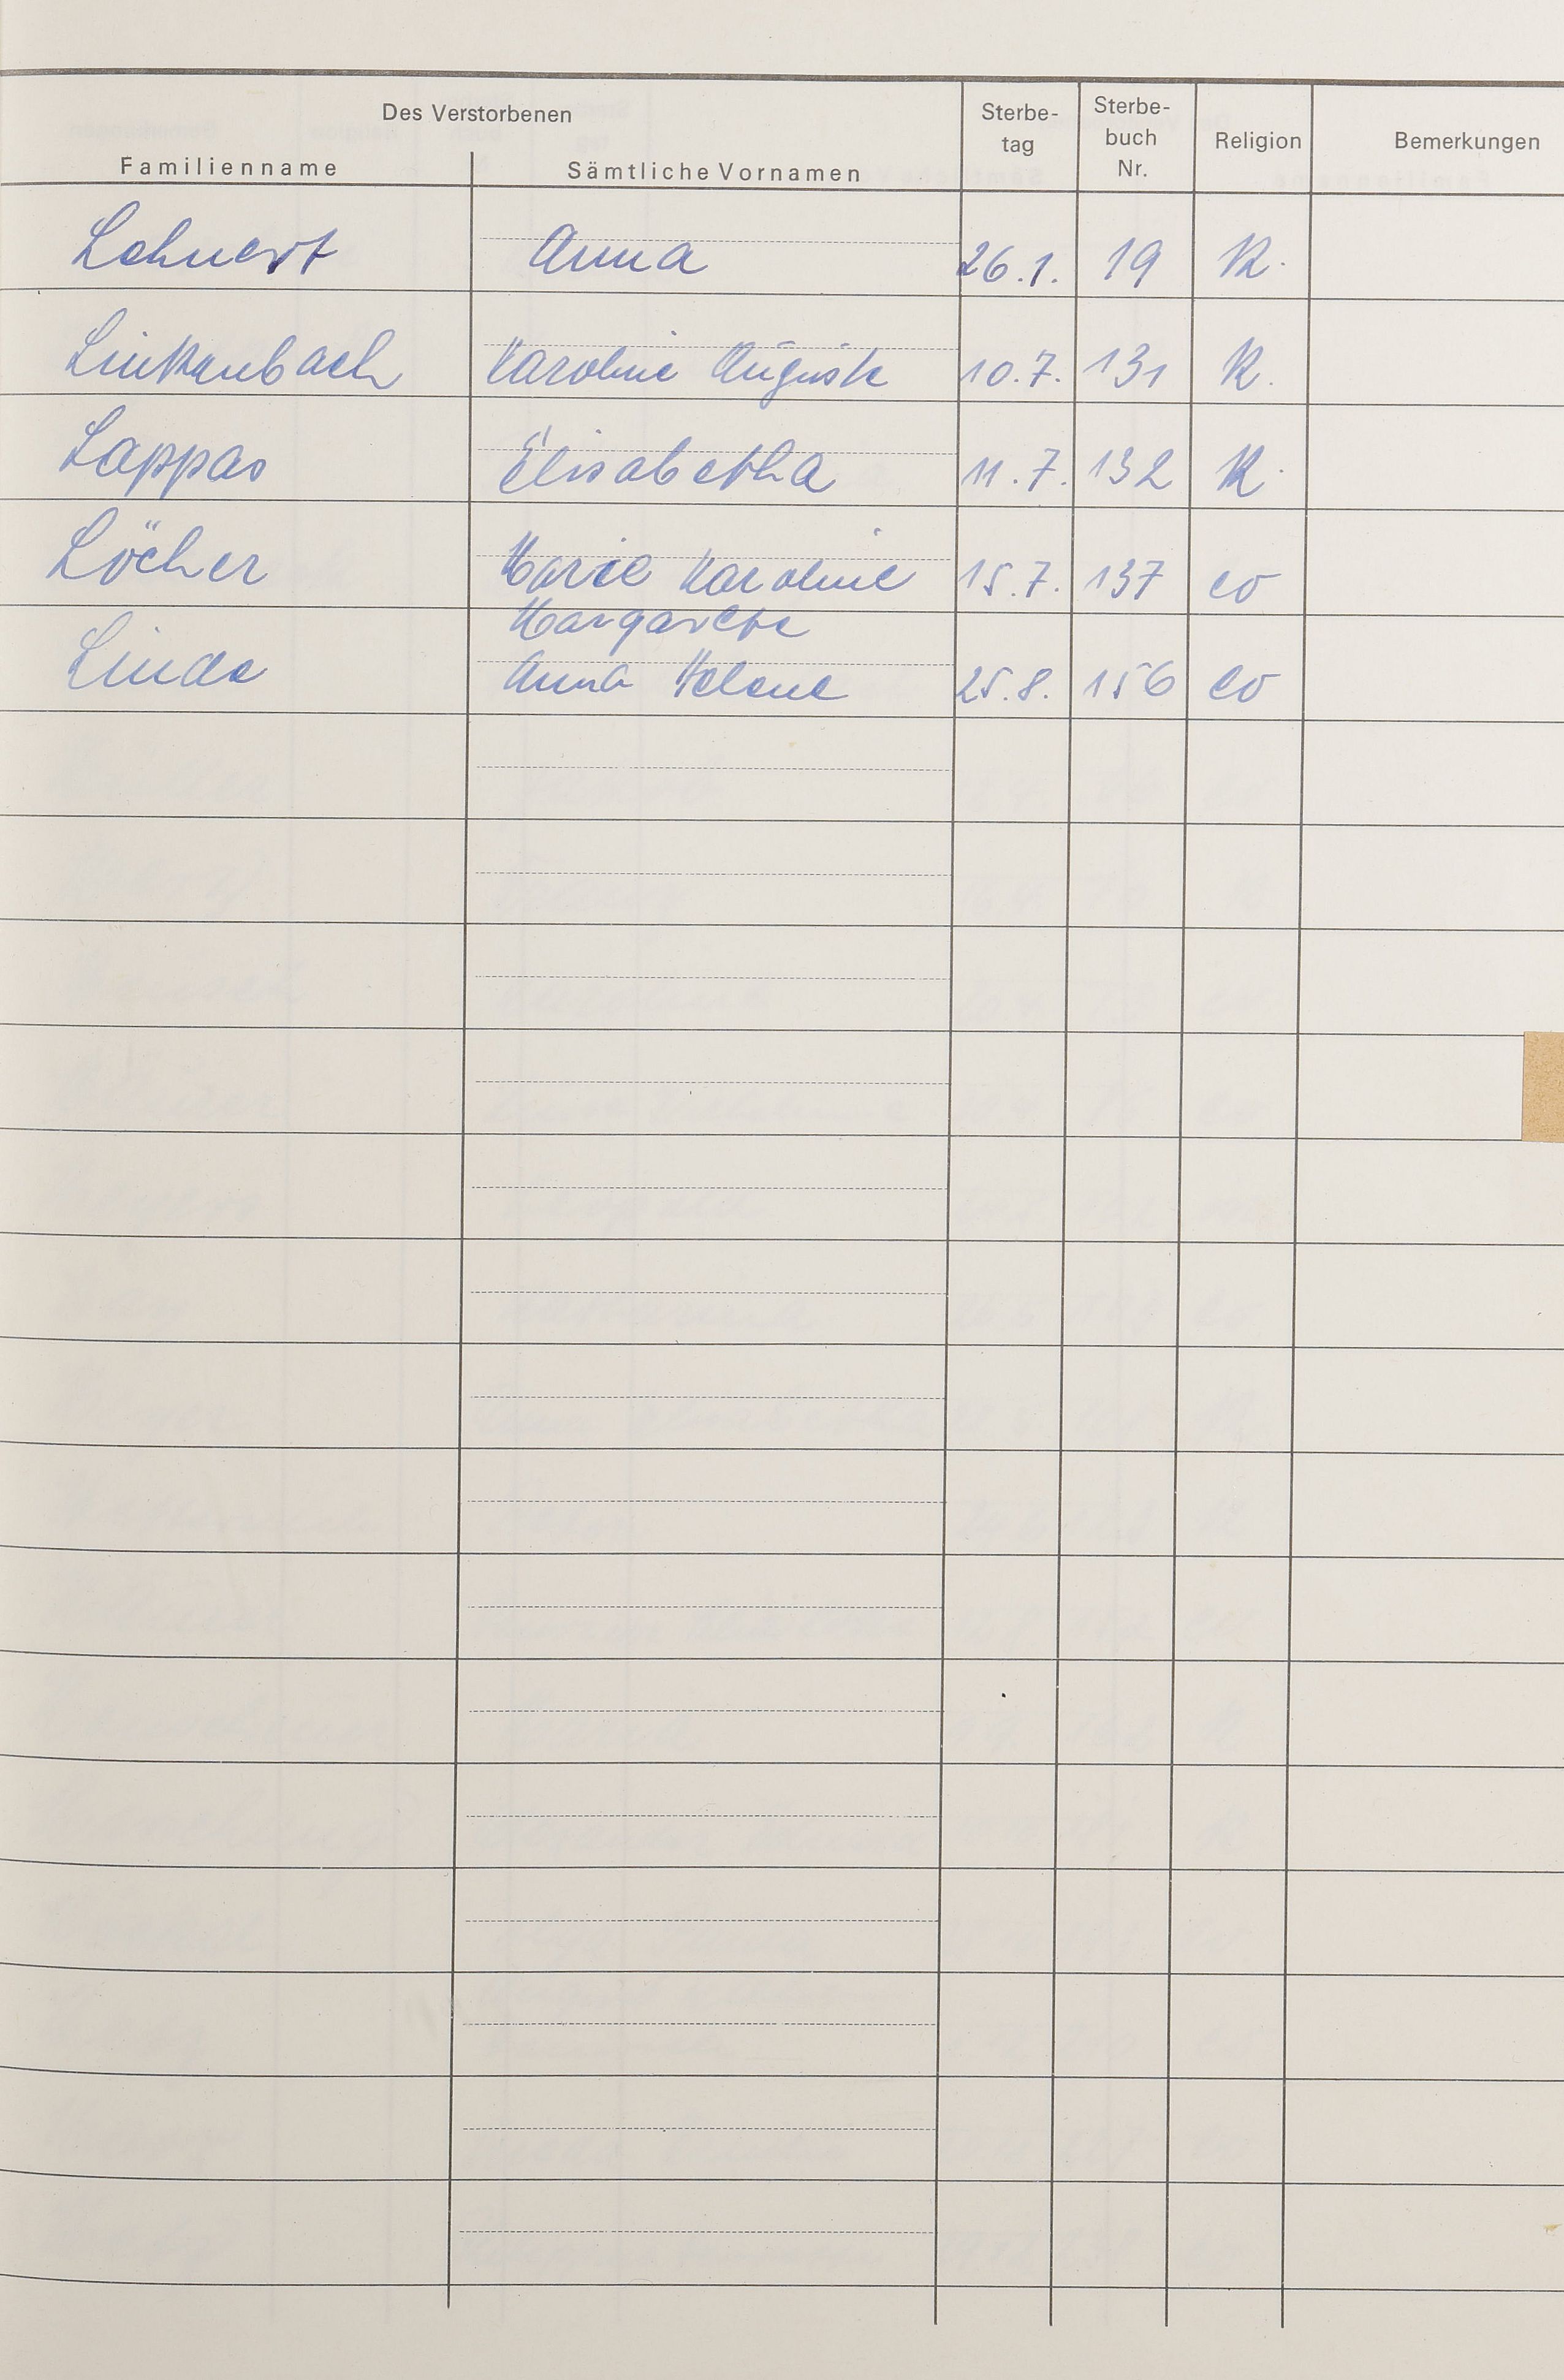 Des Verstorbenen
Familienname Sämtliche Vornamen Sterbe-tag Sterbe-buch Nr. Religion Bemerkungen
Lehnert Anna 26.1. 19 K.
Linkenbach Karoline Auguste 10.7. 131 K.
Lappas Elisabetha 11.7. 132 K.
Löcher Marie Karoline 15.7. 137 ev
Margarete
Linde Anna Helene 25.8. 156 ev